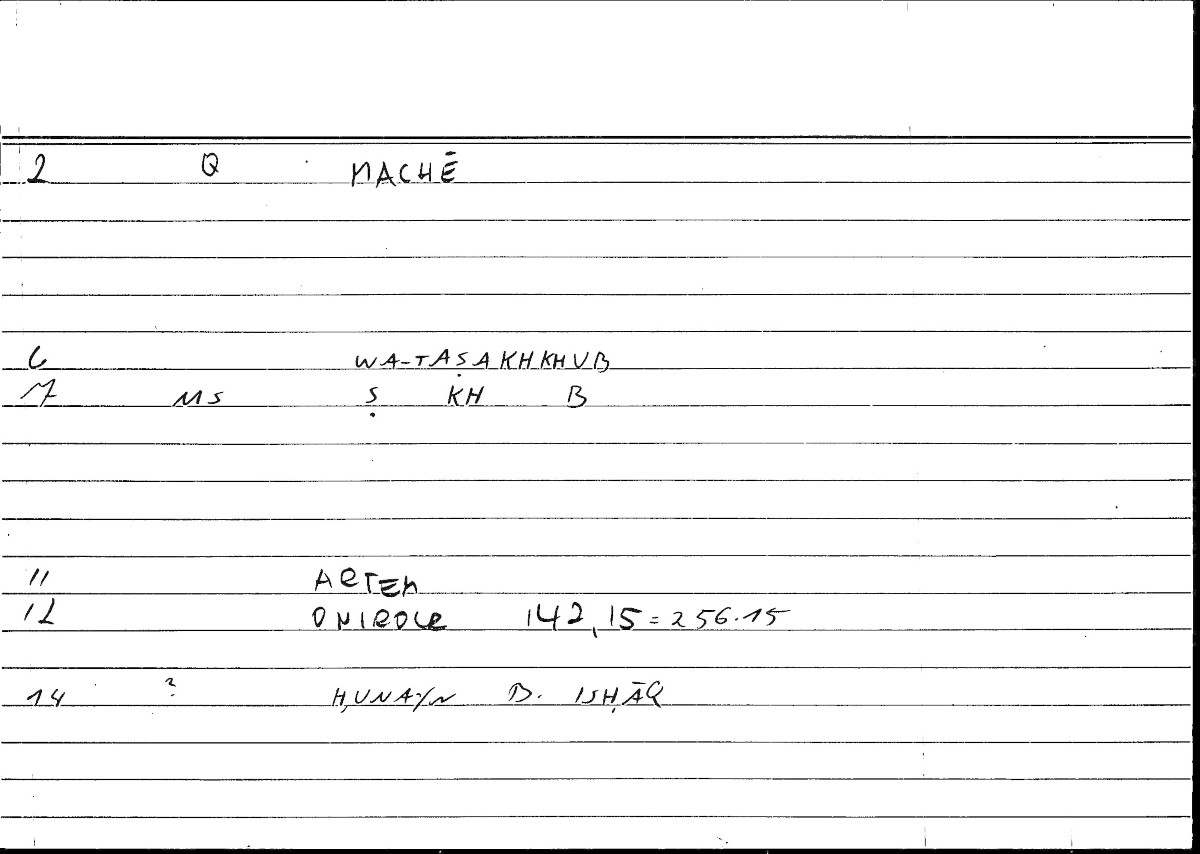 2 Q MACHĒ
6 WA-TAṢAKHKHUB
7 MS Ṣ KH B
11 ARTEM
12 ONIROCR 142,15 = 256.15
14 ? ḤUNAYN B. ISḤĀQ